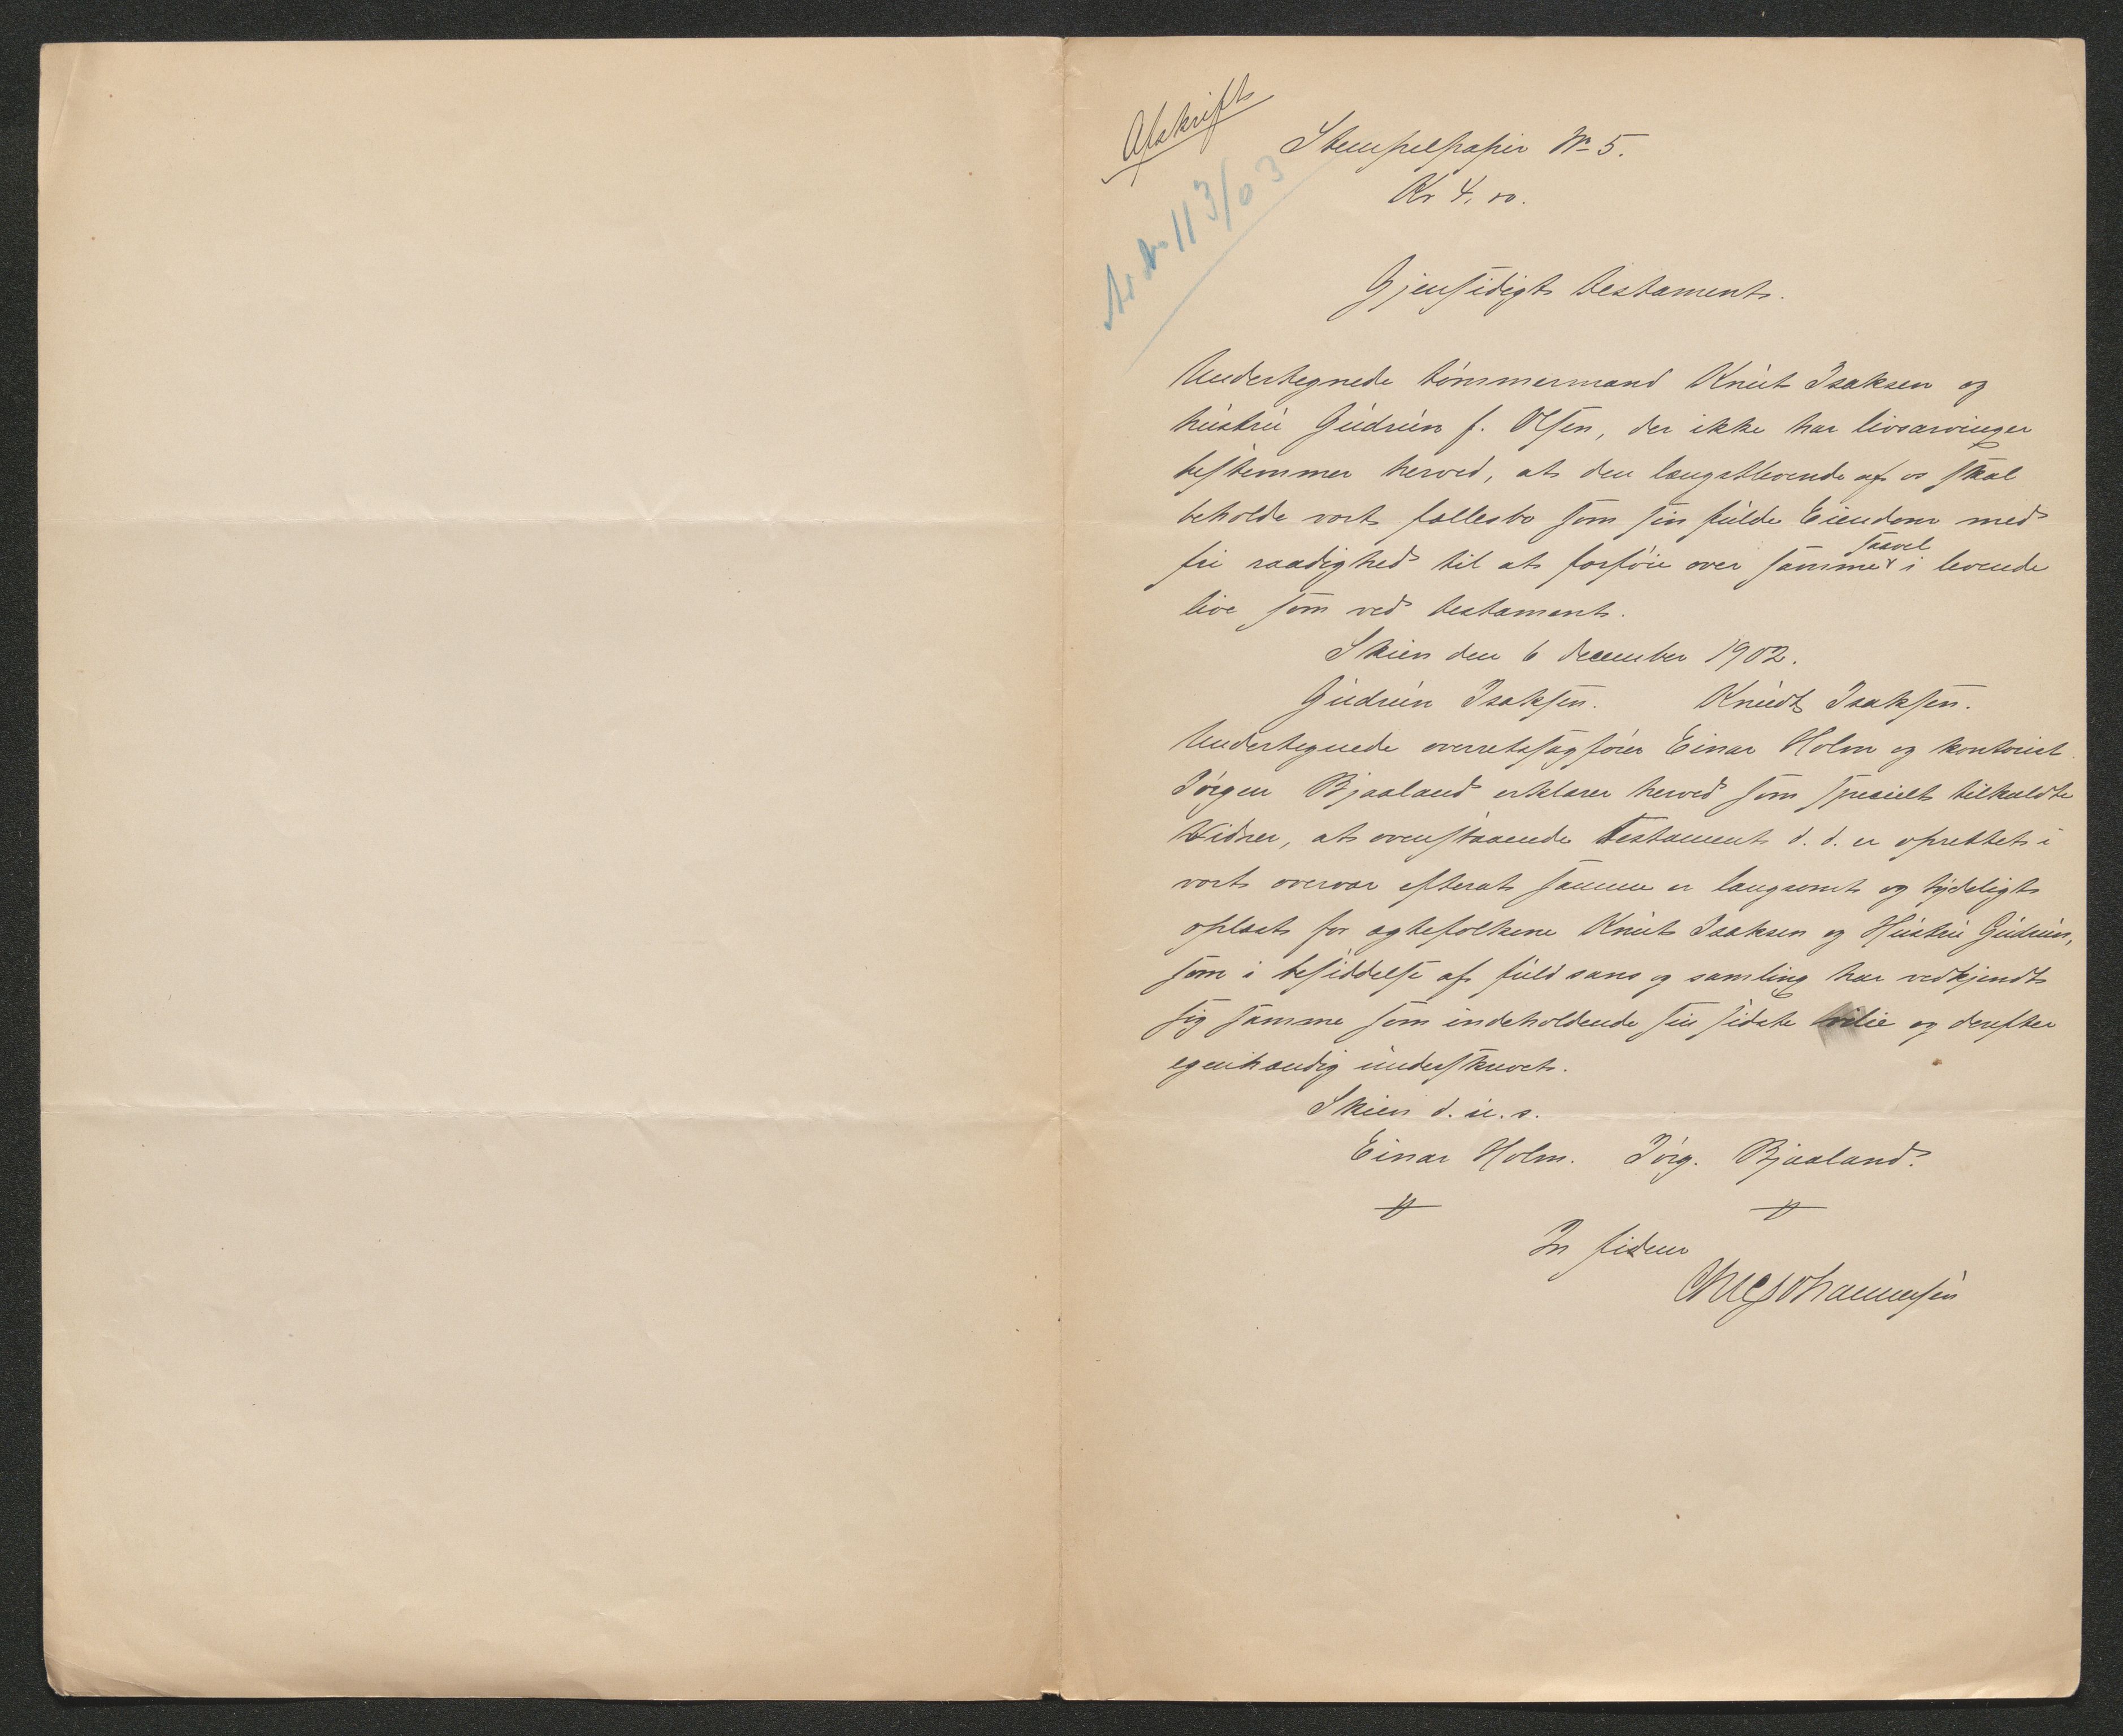 Afskrift
Stempelpapir No 5.
Kr 4,00.
113/03
Gjensidigt testament.
Undertegnede tömmermand Knut Isaksen og
hustru Gudrun f. Olsen, der ikke har livsarvinger
bestemmer herved, at den længstlevende af os skal
beholde vort fællesbo som sin fulde Eiendom med
fri raadighed til at forföie over samme saavel i levende
live som ved testament.
Skien den 6 december 1902.
Gudrun Isaksen. Knudt Isaksen.
Undertegnede overretssagförer Einar Holm og kontorist
Jörgen Bjaaland erklærer herved som specielt tilkaldte
Vidner, at ovenstaaende Testament d. d. er oprettet i
vort overvær efterat samme er langsomt og tydeligt
oplæst for ægtefolkene Knut Isaksen og Hustru Gudrun,
som i besiddelse af fuld sans og samling har vedkjendt
sig samme som indeholdende sin sidste vilie og derefter
egenhændig underskrevet.
Skien d. u. s.
Einar Holm. Jörg. Bjaaland.
In fidem
Johannessen